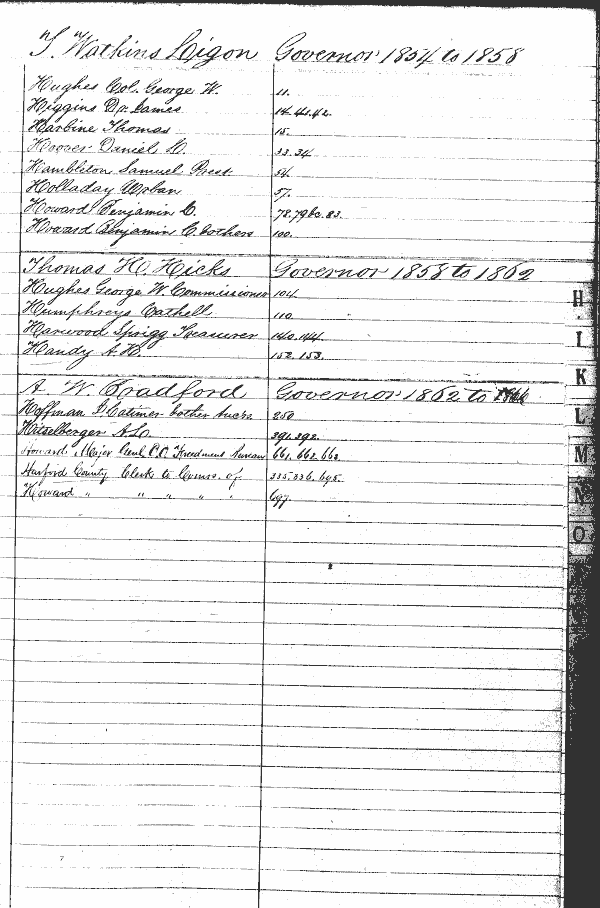 "T." Watkins Ligon Governor 1854 to 1858
Hughes Col. George W. 11.
Higgins Dr. James 14.41.42.
Harbine Thomas 15.
Hoover Daniel 33.34.
Hambleton Samuel Prest 54.
Holladay Urban 57.
Howard Benjamin C. 78.79 83.
Howard Benjamin C. & others 100.
Thomas H. Hicks Governor 1858 to 1862
Hughes George W. Commissioner 104
Humphreys Cathell 110
Harwood Sprigg Treasurer 140.144.
Handy A. H. 152.153.
A. W. Bradford Governor 1862 to
Hoffman & other 250
Hitzelberger A. L. 391.392.
Howard, Major Genl. O. O. Freedmens Bureau 661.662.663.
Harford County Clerk to Comrs. of 335.336.695.
Howard " " " " " 697
H.
I
K
L
M
N
O